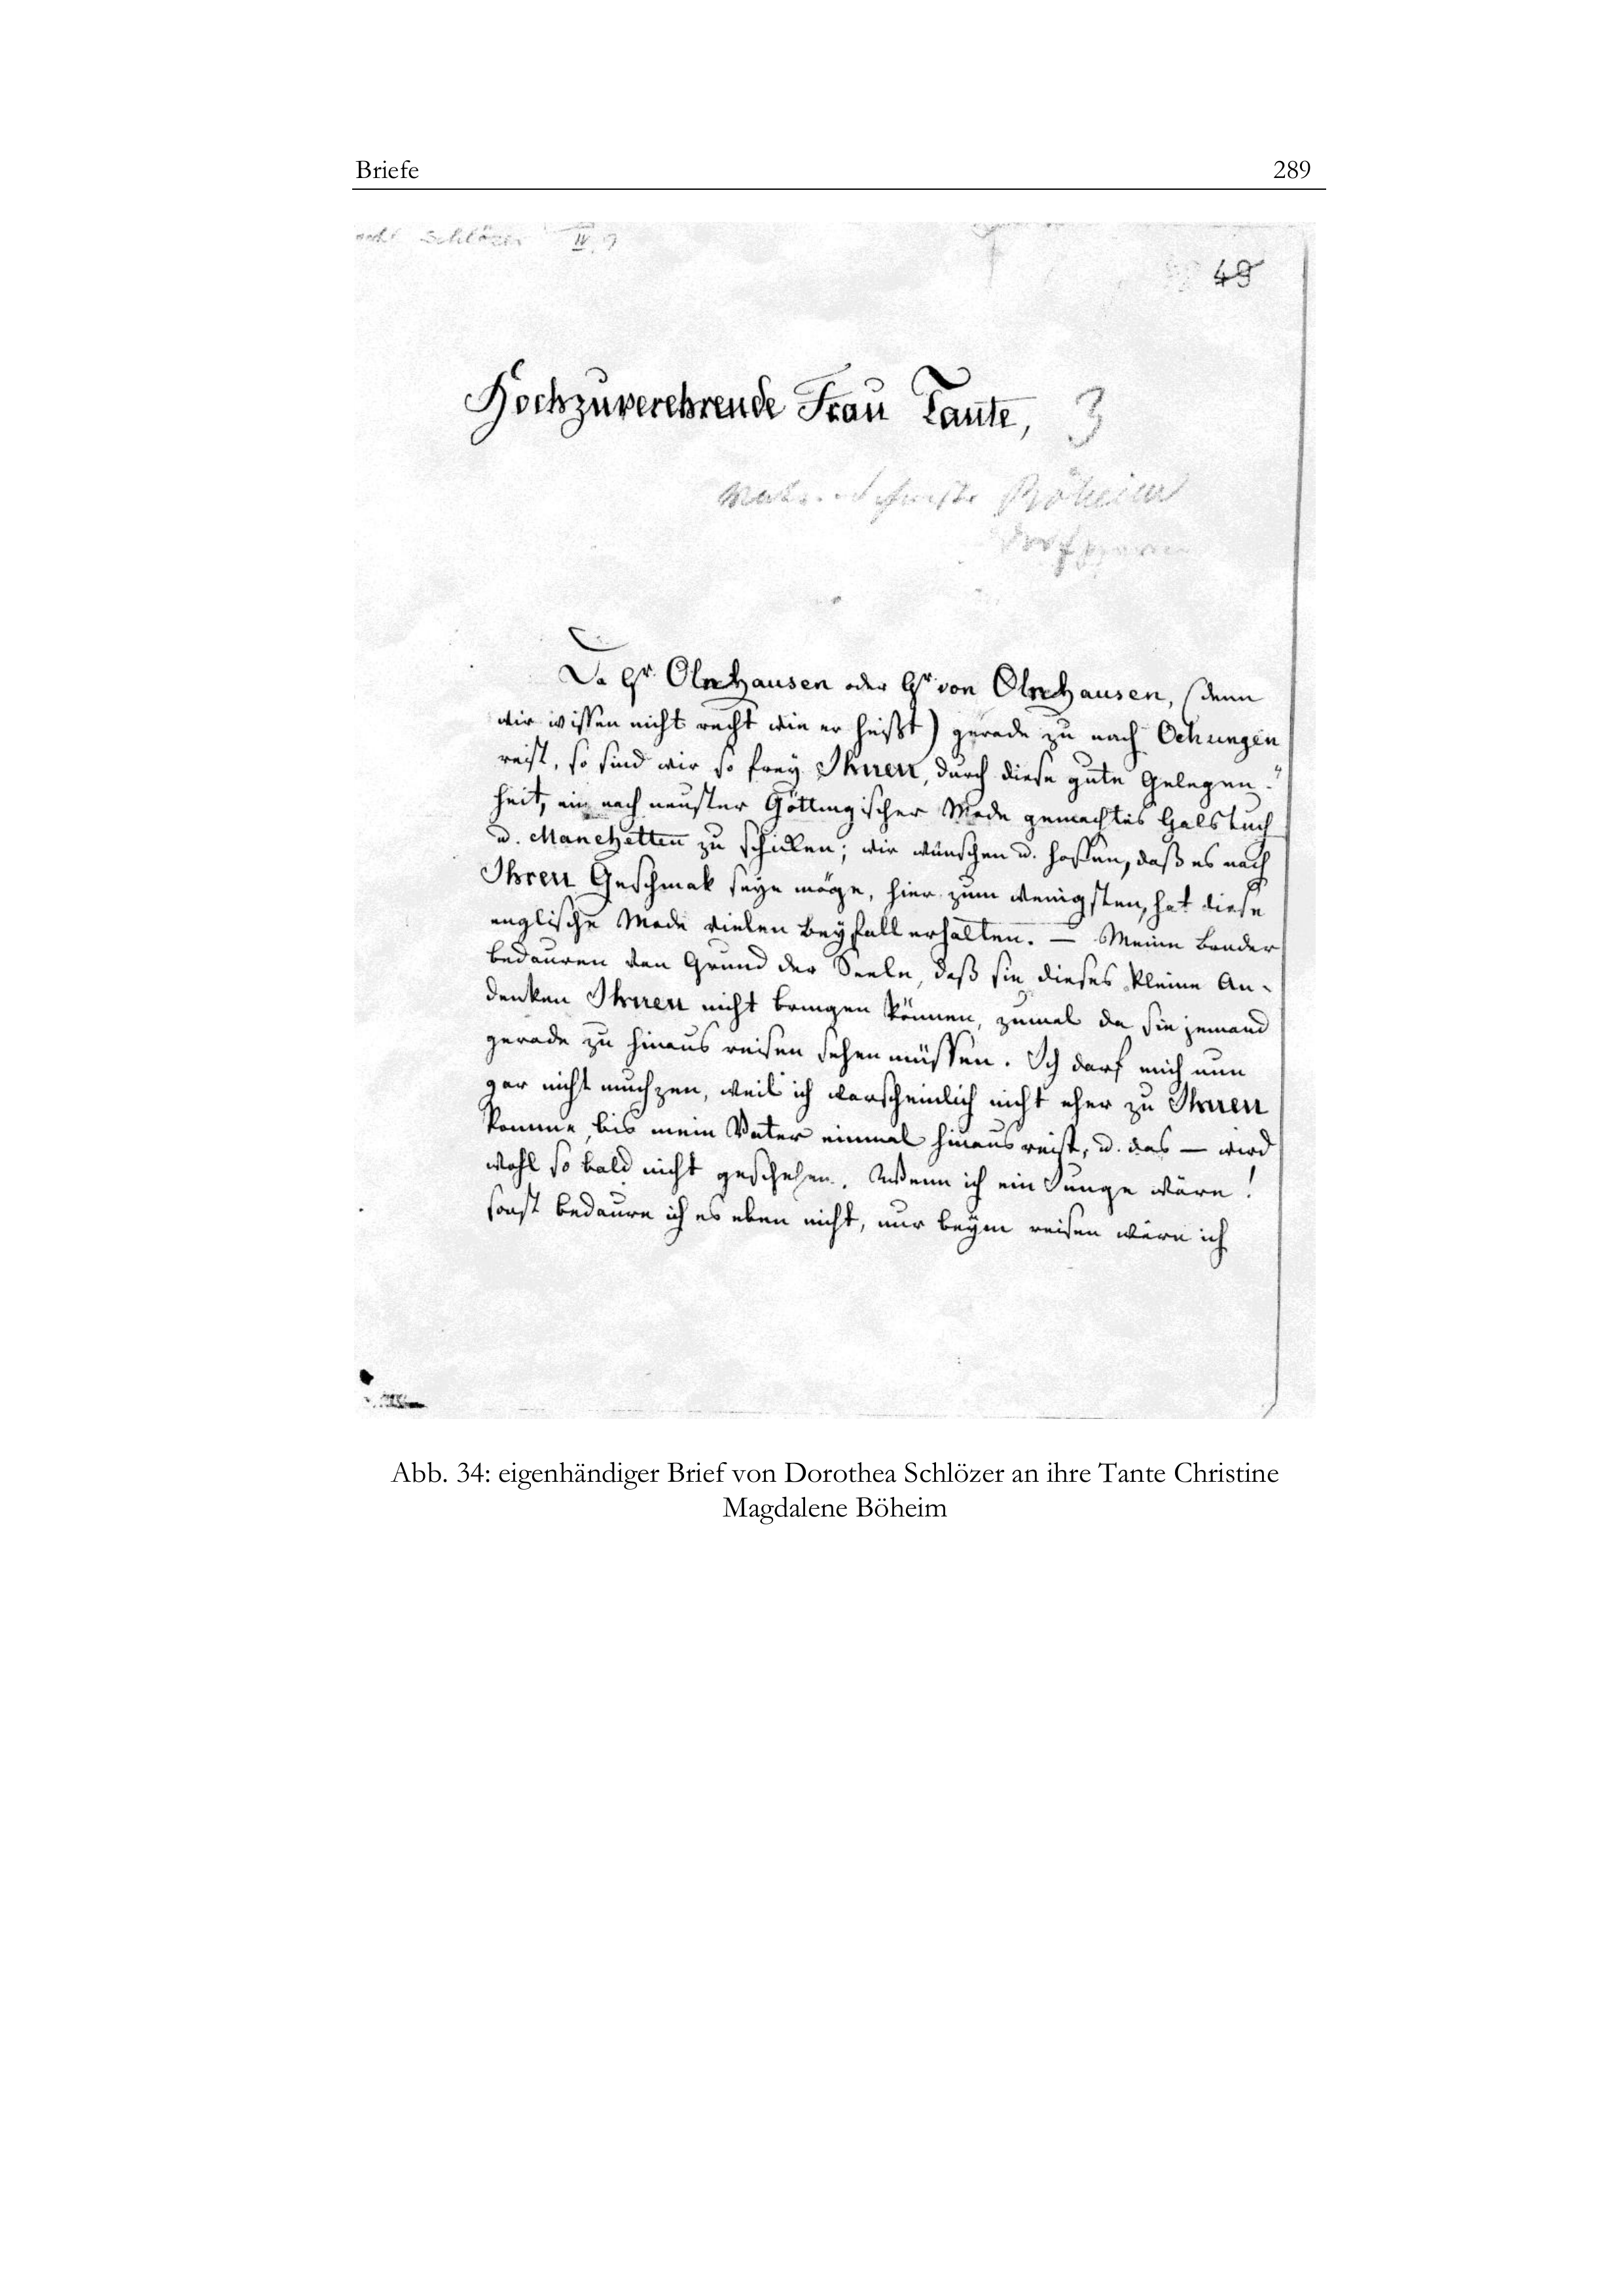 Briefe 289
Schlözer IV, 9
49
Hochzuverehrende Frau Tante, 3
Böheim
Da Hr Olnhausen oder Hr von Olnhausen, (denn
wir wissen nicht recht wie er heißt) gerade zu nach Oehringen
reist, so sind wir so frey Ihnen, durch diese gute Gelegen-
heit, ein nach neuster Göttingischer Mode gemachtes Halstuch
u. Manchetten zu schicken; wir wünschen u. hoffen, daß es nach
Ihren Geschmak seyn möge, hier zum wenigsten, hat diese
englische Mode vielen Beyfall erhalten. — Meine Brüder
bedauren von Grund der Seele, daß sie dieses kleine An-
denken Ihnen nicht bringen können, zumal da sie jemand
gerade zu hinaus reisen sehen müssen. Ich darf mich nun
gar nicht muchzen, weil ich warscheinlich nicht eher zu Ihnen
komme, bis mein Vater einmal hinaus reist, u. das — wird
wohl so bald nicht geschehen. Wenn ich ein Junge wäre!
sonst bedaure ich es eben nicht, nur beym reisen wäre ich
Abb. 34: eigenhändiger Brief von Dorothea Schlözer an ihre Tante Christine
Magdalene Böheim